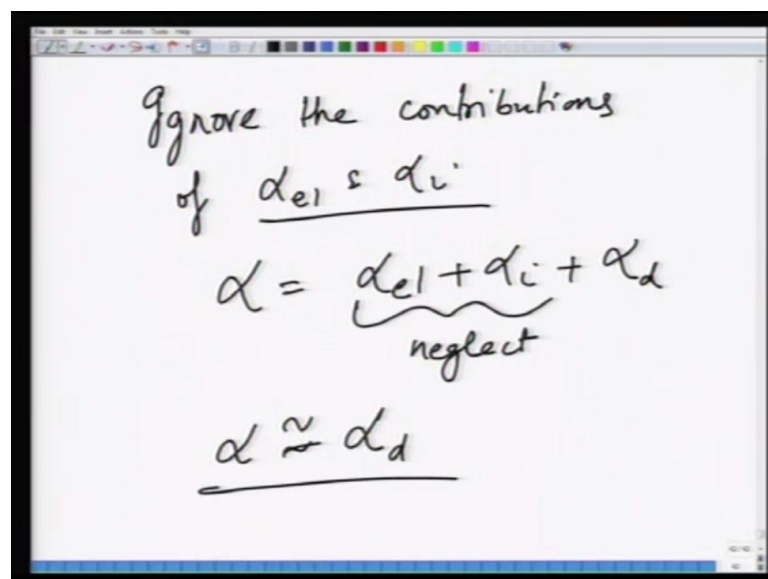 File Edit View Insert Actions Tools Help
Ignore the contributions
of αel & αi
α = αel + αi + αd
neglect
α ≅ αd